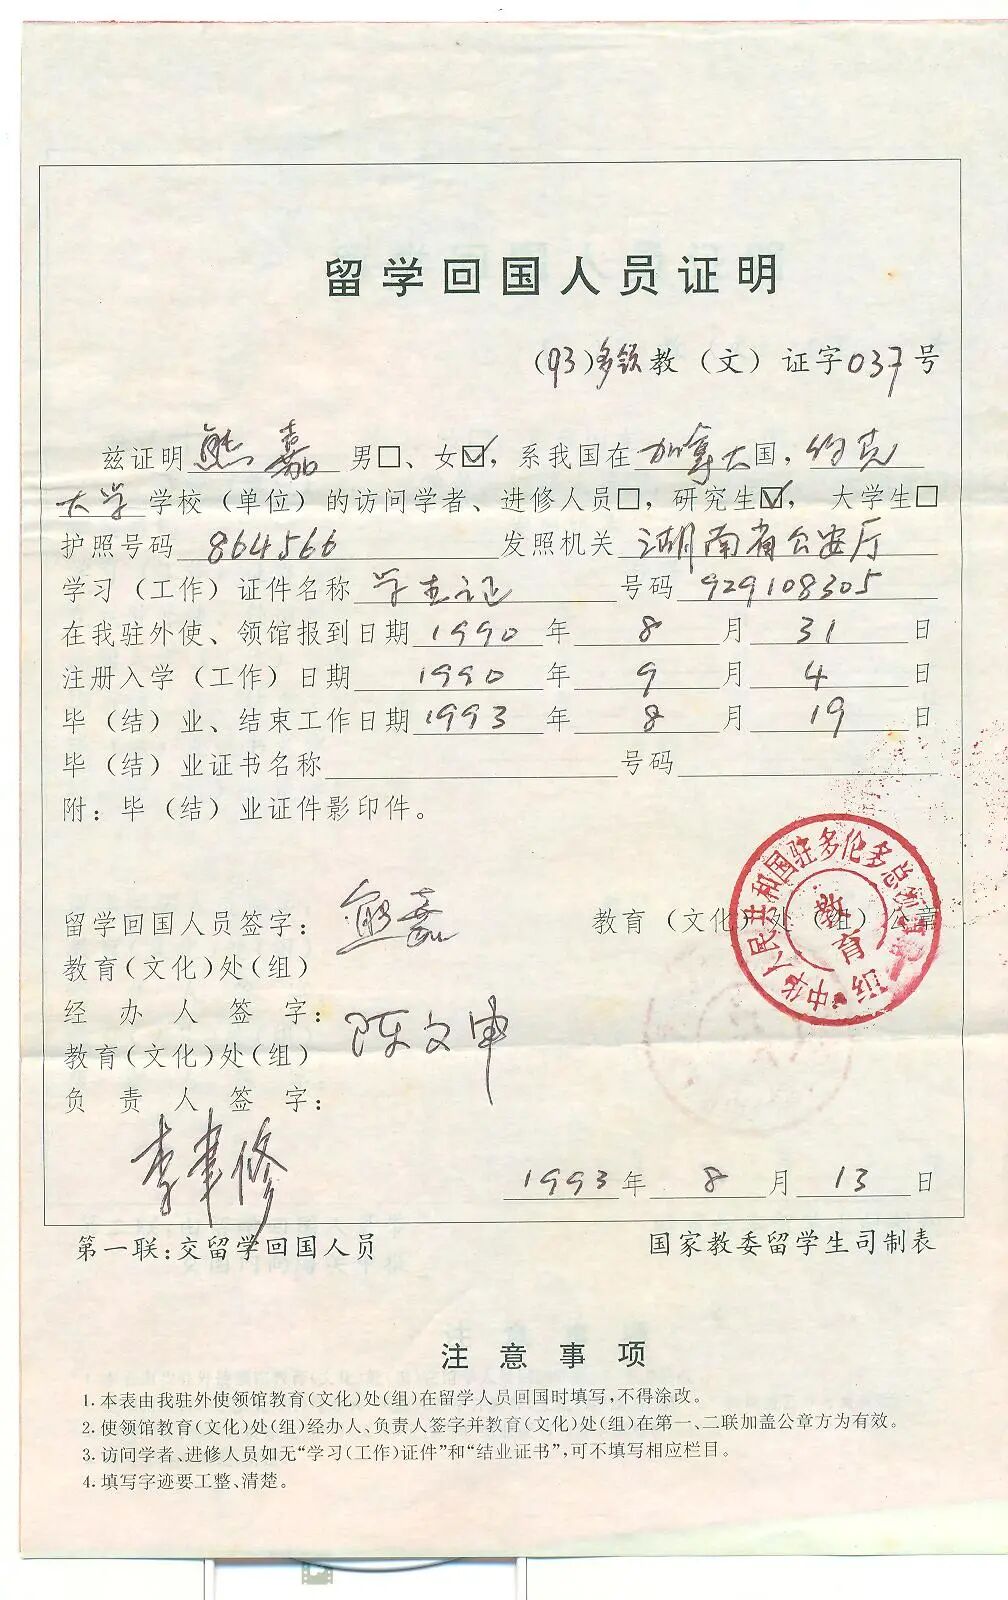 留学回国人员证明
(93)多领教(文)证字037号
兹证明熊嘉 男□、女☑,系我国在加拿大国,约克
大学学校(单位)的访问学者、进修人员□,研究生☑,大学生□
护照号码 864566 发照机关 湖南省公安厅
学习(工作)证件名称 学生证 号码 929108305
在我驻外使、领馆报到日期 1990 年 8 月 31 日
注册入学(工作)日期 1990 年 9 月 4 日
毕(结)业、结束工作日期 1993 年 8 月 19 日
毕(结)业证书名称 号码
附:毕(结)业证件影印件。
留学回国人员签字: 熊嘉 教育(文化)处(组)公章
中华人民共和国驻多伦多总领事馆
教育组
教育(文化)处(组)
经办人签字: 陈文申
教育(文化)处(组)
负责人签字:
1993 年 8 月 13 日
第一联:交留学回国人员 国家教委留学生司制表
注意事项
1.本表由我驻外使领馆教育(文化)处(组)在留学人员回国时填写,不得涂改。
2.使领馆教育(文化)处(组)经办人、负责人签字并教育(文化)处(组)在第一、二联加盖公章方为有效。
3.访问学者、进修人员如无“学习(工作)证件”和“结业证书”,可不填写相应栏目。
4.填写字迹要工整、清楚。